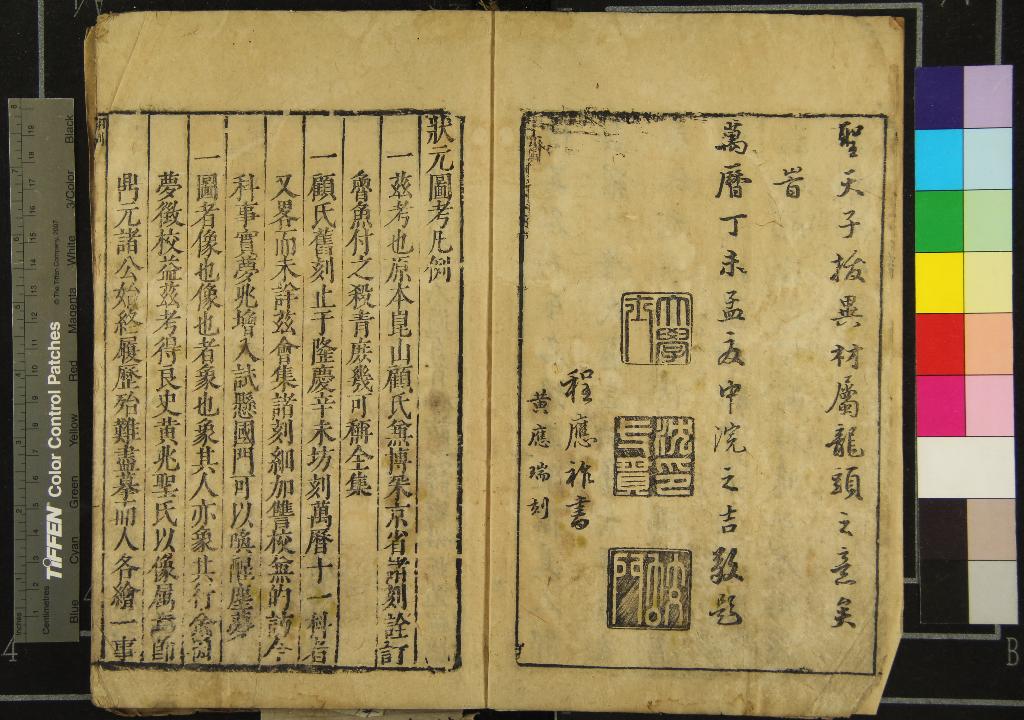 聖天子拔異材屬龍頭之意矣
萬曆丁未孟夏中浣之吉敬題
程應祚書
黃應瑞刻
狀元圖考凡例
一茲考也原本崑山顧氏兼博采京省諸刻詮訂
魯魚付之殺青庶幾可稱全集
一顧氏舊刻止于隆慶辛未坊刻萬曆十一科者
又畧而未詳茲會集諸刻細加讐校無的訪今
科事實夢兆增入試懸國門可以喚醒塵夢
一圖者像也像也者象也象其人亦象其行
夢徵校益茲考得良史黃兆聖氏以像屬
鼎元諸公始終履歷殆難盡摹而人各繪一事
TIFFEN Color Control Patches
© The Tiffen Company, 2007
Centimetres
Inches
Blue
Cyan
Green
Yellow
Red
Magenta
White
3/Color
Black
4
B